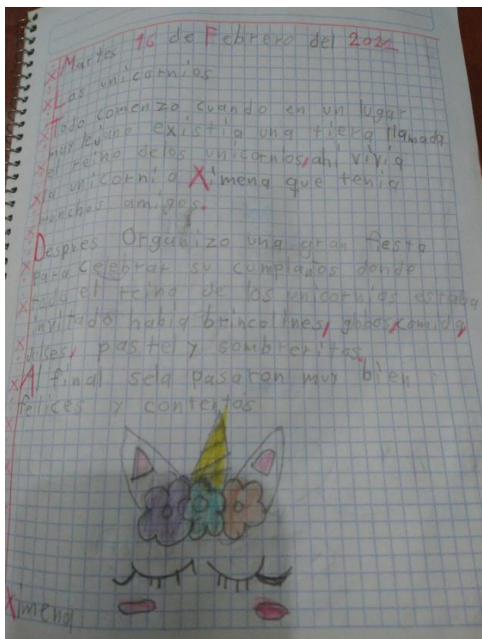 Martes 16 de Febrero del 2021
Los unicornios
Todo comenzo cuando en un lugar
muy lejano existia una tiera llamada
el reino de los unicornios, ahi vivia
la unicornio Ximena que tenia
munchos amigos.
Despues Organizo una gran fiesta
para celebrar su cumpleaños donde
todo el reino de los unicornios estaba
invitado habia brincolines, globos, comida,
dulses, pastel y sombreritos.
Al final sela pasaron muy bien
felices y contentos
Ximena